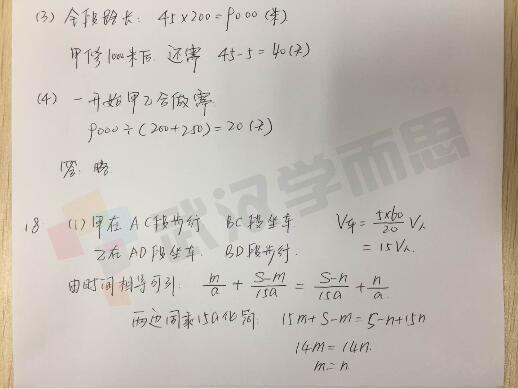 (3) 全段路长: 45×200=9000(米)
甲修1000米后 还需 45-5=40(天)
(4) 一开始甲乙合做需
9000÷(200+250)=20(天)
答: 略
18 (1) 甲在AC段步行 BC段坐车 V车=5×60/20 V人
乙在AD段坐车 BD段步行. =15V人
由时间相等可列: m/a + (S-m)/15a = (S-n)/15a + n/a
两边同乘15a化简: 15m+S-m=S-n+15n
14m=14n.
m=n
武汉学而思